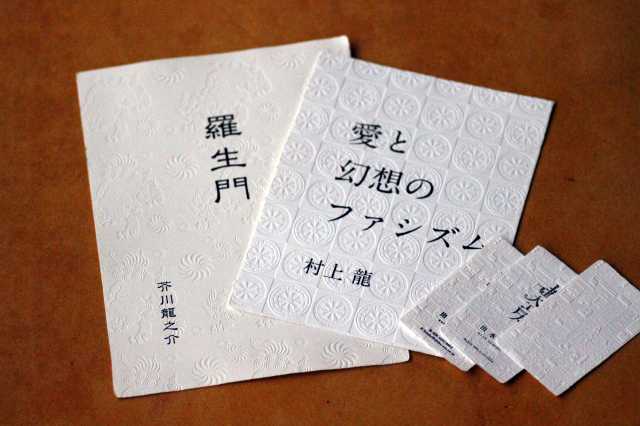 羅生門
芥川龍之介
愛と
幻想の
ファシズム
村上龍